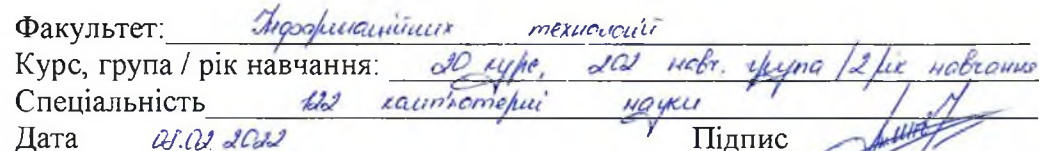 Факультет: Інформаційних технологій
Курс, група / рік навчання: 2й курс, 202 навч. група / 2 рік навчання
Спеціальність 122 комп'ютерні науки
Дата 01.02.2022 Підпис